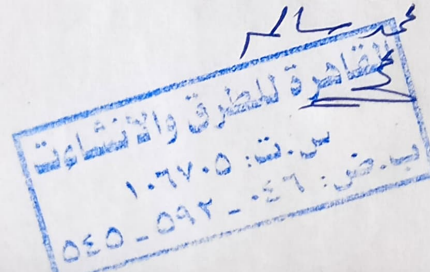 محمد سالم
القاهرة للطرق والانشاءت
س.ت: ١٠٦٧٠٥
ب.ض: ٠٤٦ - ٥٩٢ - ٥٤٥